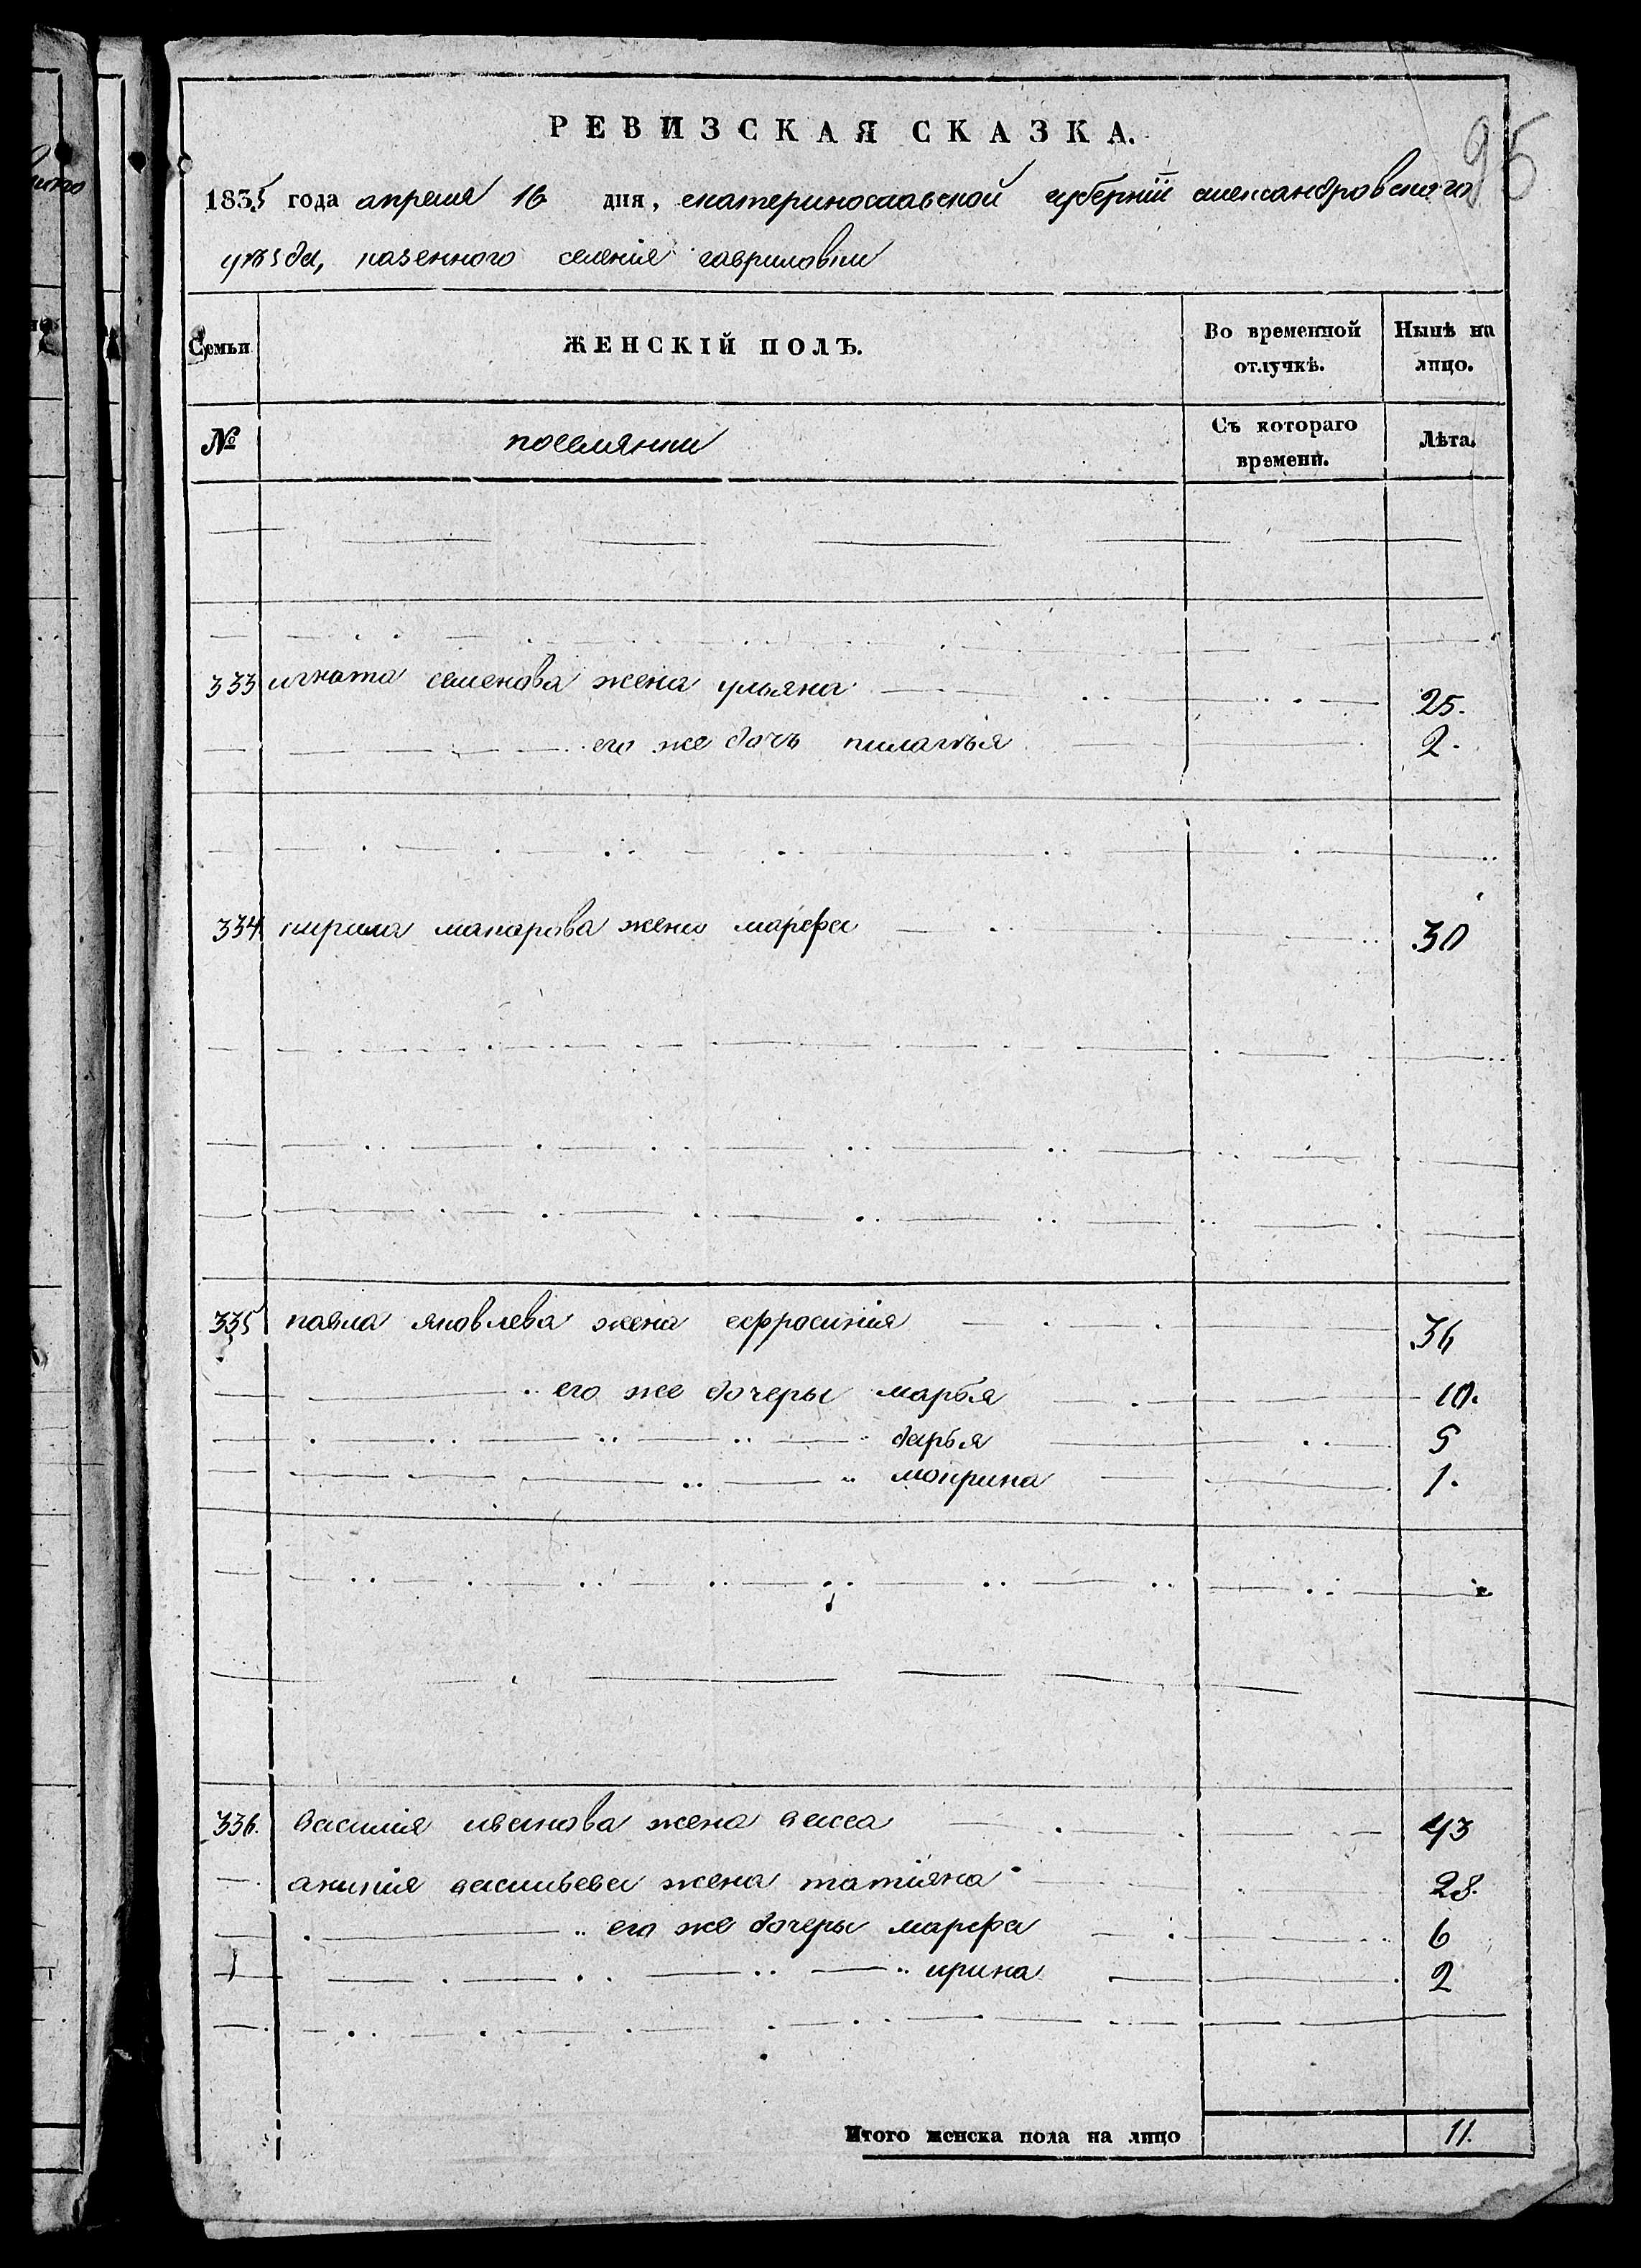 95
РЕВИЗСКАЯ СКАЗКА.
1835 года апреля 16 дня, екатеринославской губерніи александровского
уѣзда, казенного селенія гавриловки
Семьи ЖЕНСКІЙ ПОЛЪ. Во временной отлучкѣ. Нынѣ на лицо.
№ поселянки Съ котораго времени. Лѣта.
333 игната семенова жена ульяна 25.
его же дочь пилагѣя 2.
334 кирила макарова жена марефа 30
335 павла яковлева жена ефросинія 36
его же дочеры марья 10.
дарья 5
мокрина 1.
336. василія иванова жена васса 43
аникія васильева жена татіяна 28.
его же дочеры марефа 6
ирина 2
Итого женска пола на лицо 11.